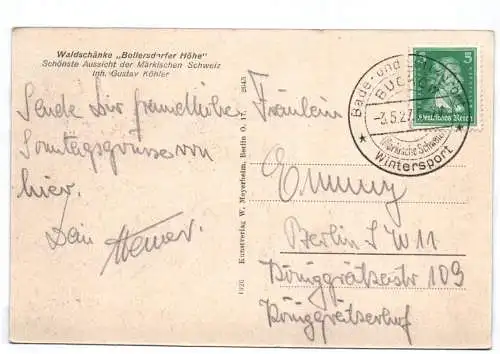 Waldschänke „Bollersdorfer Höhe"
Schönste Aussicht der Märkischen Schweiz
Inh. Gustav Köhler
Sende Dir freundliche
Sonntagsgrüsse von
hier.
Dein
1926 Kunstverlag W. Meyerheim, Berlin O. 17. 2643
Fräulein
Emmy
Berlin SW 11
Königgrätzestr 109
Königgrätzerhof
Bade- und
BUCKOW
-3.5.27
Märkische Schweiz
Wintersport
5
Deutsches Reich